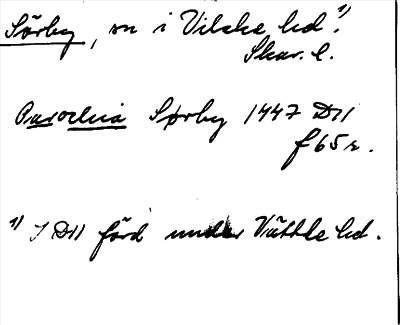 Sörby, sn i Vilske hd.¹⁾
Skar. l.
Parochia Sørby 1447 D11
f 65 r.
¹⁾ I D11 förd under Vättle hd.